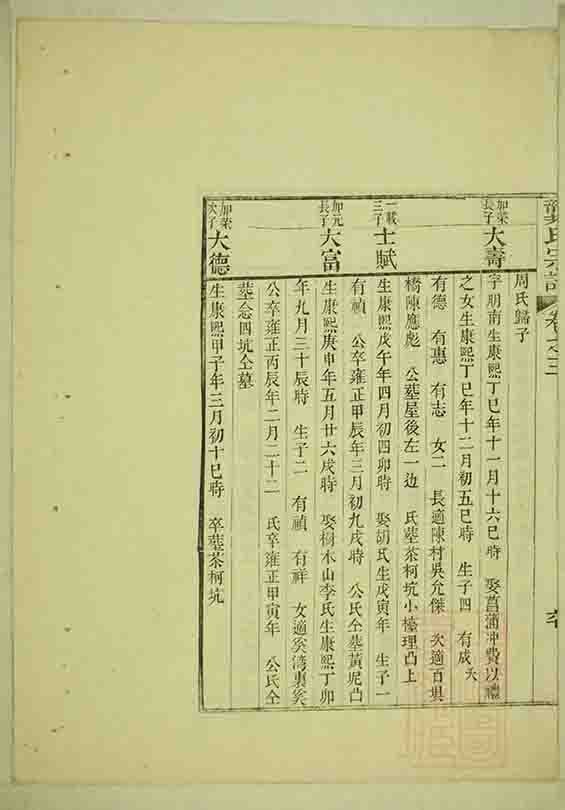 龔氏宗譜 卷之三
周氏歸子
加榮長子 大壽 字朋南生康熙丁巳年十一月十六巳時 娶菖蒲冲費以禮
之女生康熙丁巳年十二月初五巳時 生子四 有成 大
有德 有惠 有志 女二 長適陳村吳允傑 次適百埧
橋陳應彪 公塟屋後左一边 氏塟茶柯坑小檯理凸上
一載三子 士賦 生康熙戊午年四月初四卯時 娶胡氏生戊寅年 生子一
有禎 公卒雍正甲辰年三月初九戌時 公氏仝塟黃坭凸
加元長子 大富 生康熙庚申年五月廿六戌時 娶桐木山李氏生康熙丁卯
年九月三十辰時 生子二 有禎 有祥 女適奚湾裏奚
公卒雍正丙辰年二月二十二 氏卒雍正甲寅年 公氏仝
塟念四坑仝墓
加榮次子 大德 生康熙甲子年三月初十巳時 卒塟茶柯坑